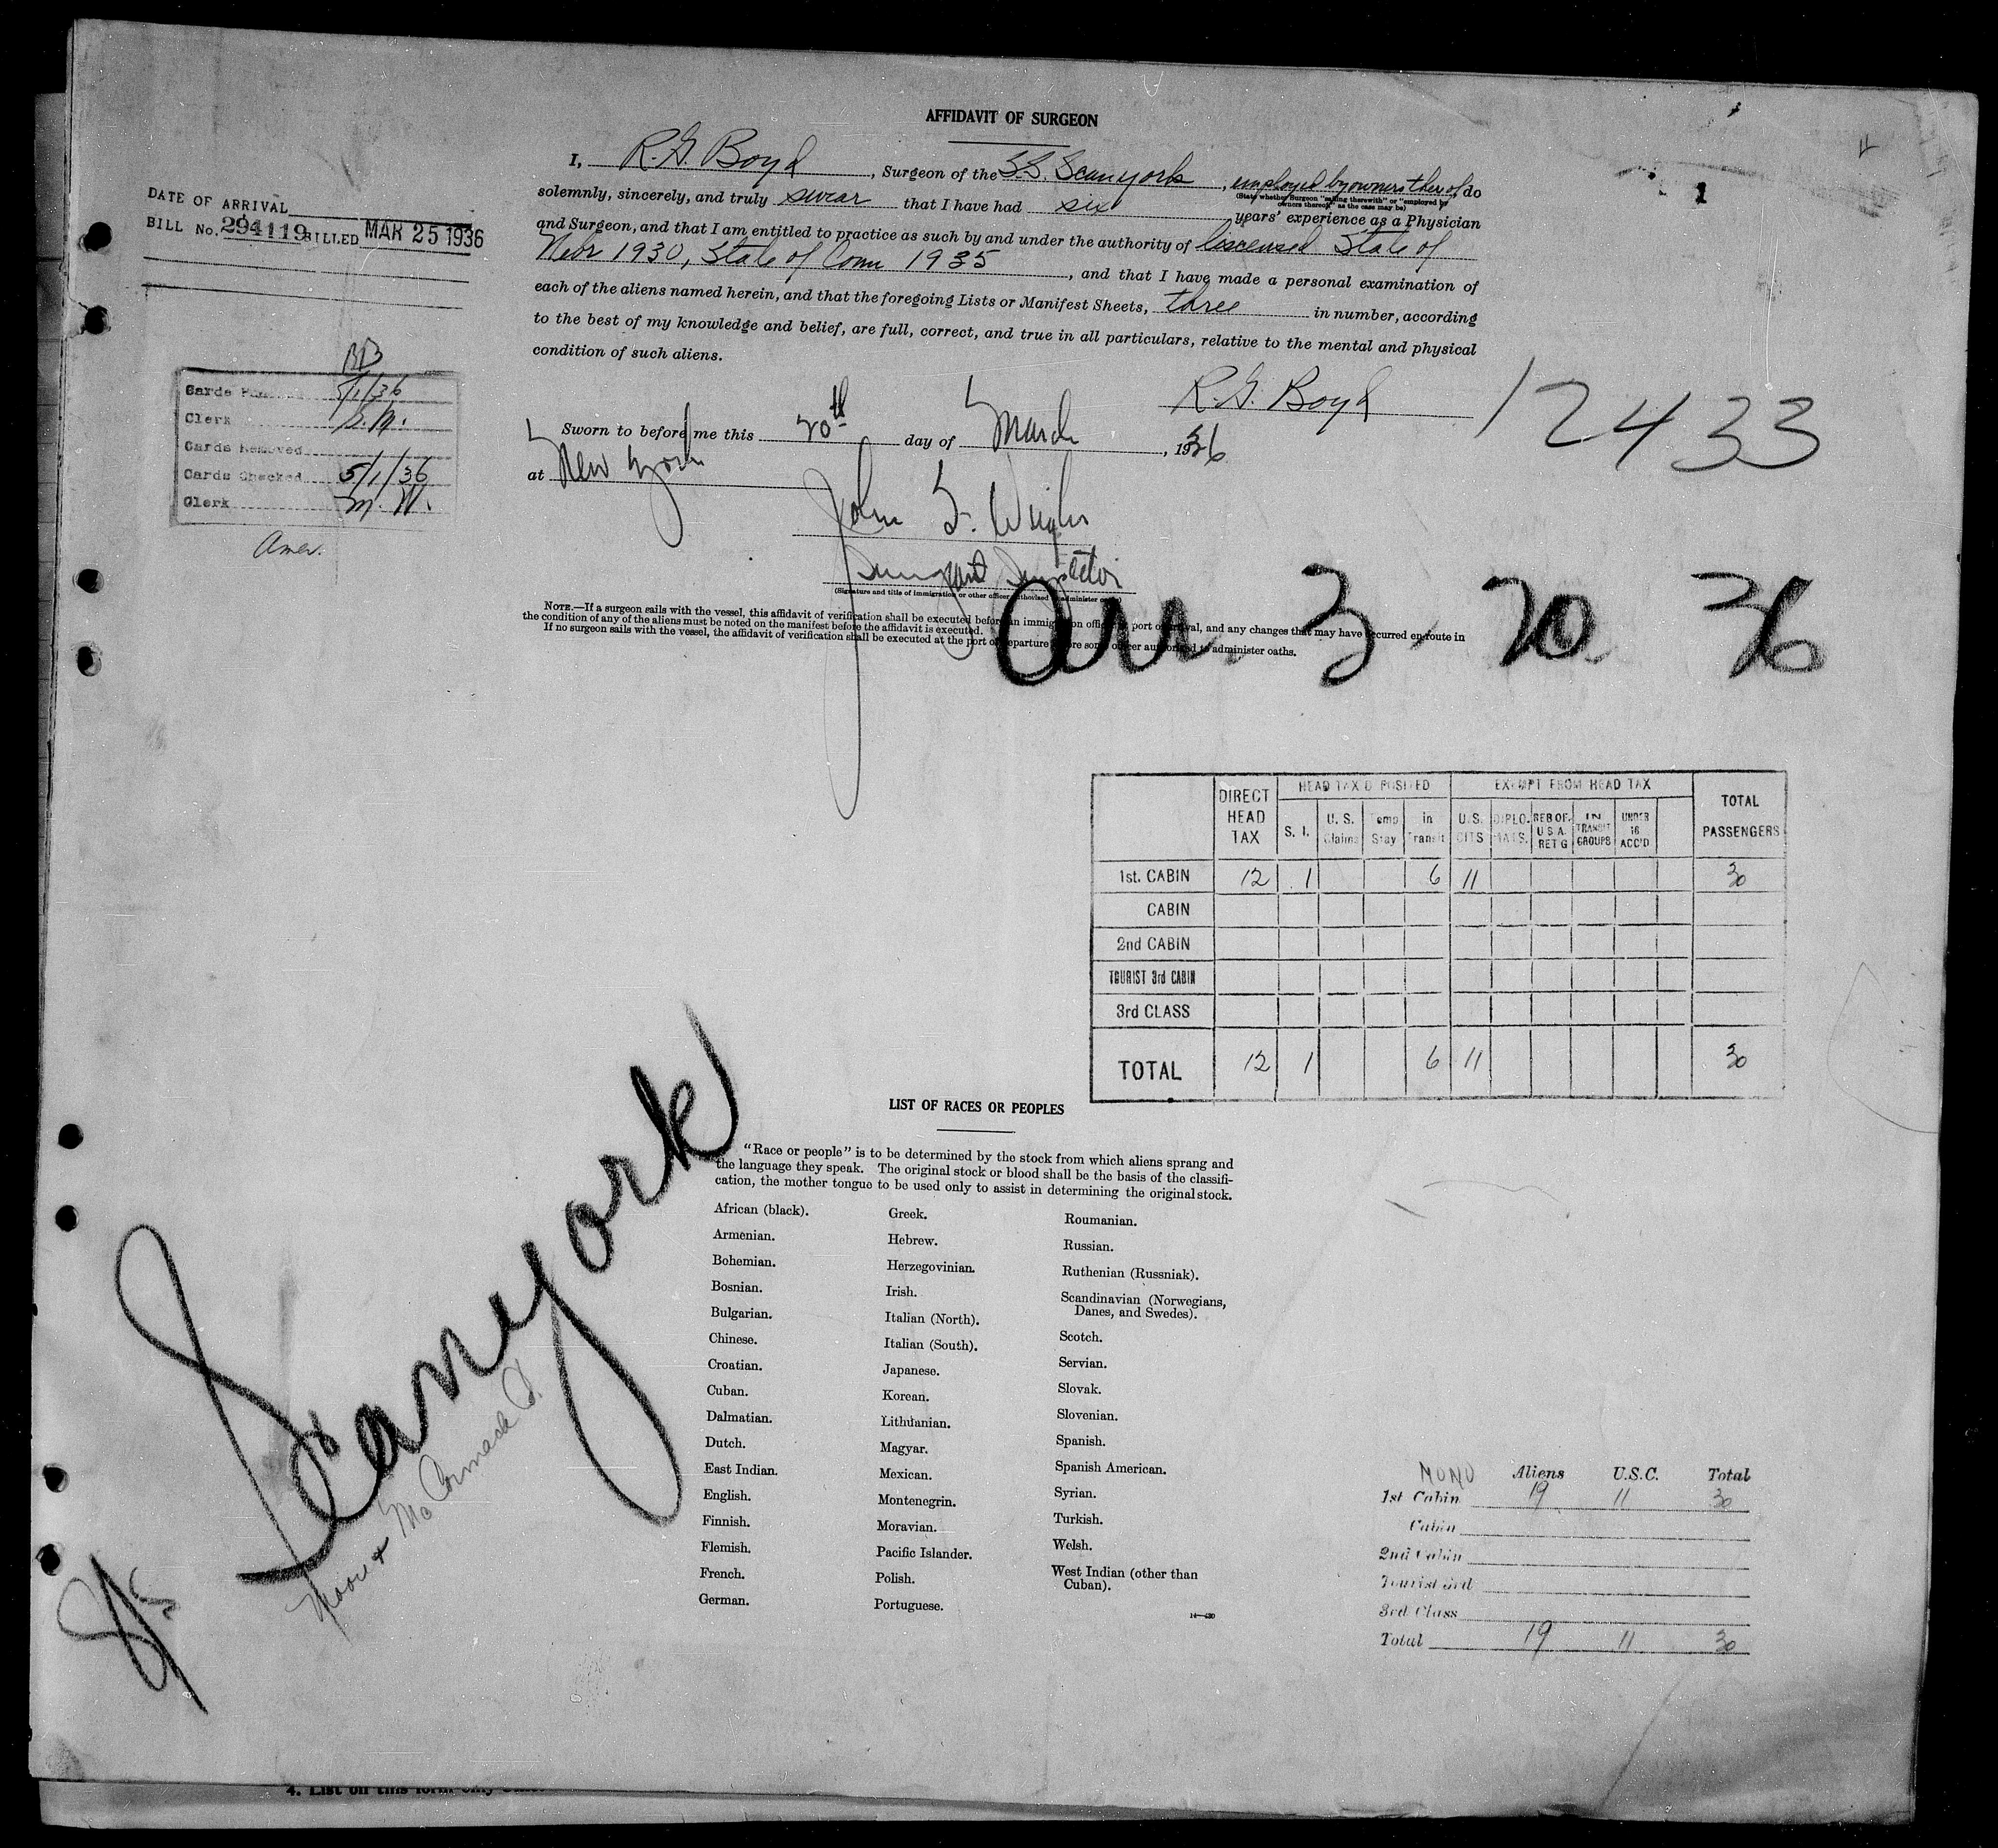 AFFIDAVIT OF SURGEON
I, R.G. Boyd, Surgeon of the S.S. Scanyork, employed by owners thereof do
(State whether Surgeon "sailing therewith" or "employed by owners thereof," as the case may be)
solemnly, sincerely, and truly swear that I have had six years' experience as a Physician
and Surgeon, and that I am entitled to practice as such by and under the authority of State of
Nebr 1930, State of Conn 1935, and that I have made a personal examination of
each of the aliens named herein, and that the foregoing Lists or Manifest Sheets, three in number, according
to the best of my knowledge and belief, are full, correct, and true in all particulars, relative to the mental and physical
condition of such aliens.
R.G. Boyd
Sworn to before me this 20th day of March, 1936
at New York
John F.
Inspector
(Signature and title of immigration or other officer authorized to administer oaths)
NOTE.—If a surgeon sails with the vessel, this affidavit of verification shall be executed before an immigration officer at port of arrival, and any changes that may have occurred en route in
the condition of any of the aliens must be noted on the manifest before the affidavit is executed.
If no surgeon sails with the vessel, the affidavit of verification shall be executed at the port of departure before some officer authorized to administer oaths.
1
12433
DATE OF ARRIVAL
BILL No. 294119 BILLED MAR 25 1936
Cards 5/1/36
Clerk
Cards Removed
Cards Checked 5/1/36
Clerk M. W.
Amer.
Arr. 3 - 20 - 36
DIRECT HEAD TAX
HEAD TAX DEPOSITED
EXEMPT FROM HEAD TAX
TOTAL PASSENGERS
S. I.
U. S. Claims
Temp Stay
in Transit
U.S. CITS
DIPLO. MATS.
RES OF. U S A. RET G
IN TRANSIT GROUPS
UNDER 16 ACC'D
1st. CABIN 12 1 6 11 30
CABIN
2nd CABIN
TOURIST 3rd CABIN
3rd CLASS
TOTAL 12 1 6 11 30
LIST OF RACES OR PEOPLES
"Race or people" is to be determined by the stock from which aliens sprang and
the language they speak. The original stock or blood shall be the basis of the classifi-
cation, the mother tongue to be used only to assist in determining the original stock.
African (black).
Armenian.
Bohemian.
Bosnian.
Bulgarian.
Chinese.
Croatian.
Cuban.
Dalmatian.
Dutch.
East Indian.
English.
Finnish.
Flemish.
French.
German.
Greek.
Hebrew.
Herzegovinian.
Irish.
Italian (North).
Italian (South).
Japanese.
Korean.
Lithuanian.
Magyar.
Mexican.
Montenegrin.
Moravian.
Pacific Islander.
Polish.
Portuguese.
Roumanian.
Russian.
Ruthenian (Russniak).
Scandinavian (Norwegians,
Danes, and Swedes).
Scotch.
Servian.
Slovak.
Slovenian.
Spanish.
Spanish American.
Syrian.
Turkish.
Welsh.
West Indian (other than
Cuban).
Scanyork
Moore & McCormack Co.
Aliens U.S.C. Total
1st Cabin 19 11 30
Cabin
2nd Cabin
Tourist 3rd
3rd Class
Total 19 11 30
4. List on this form only